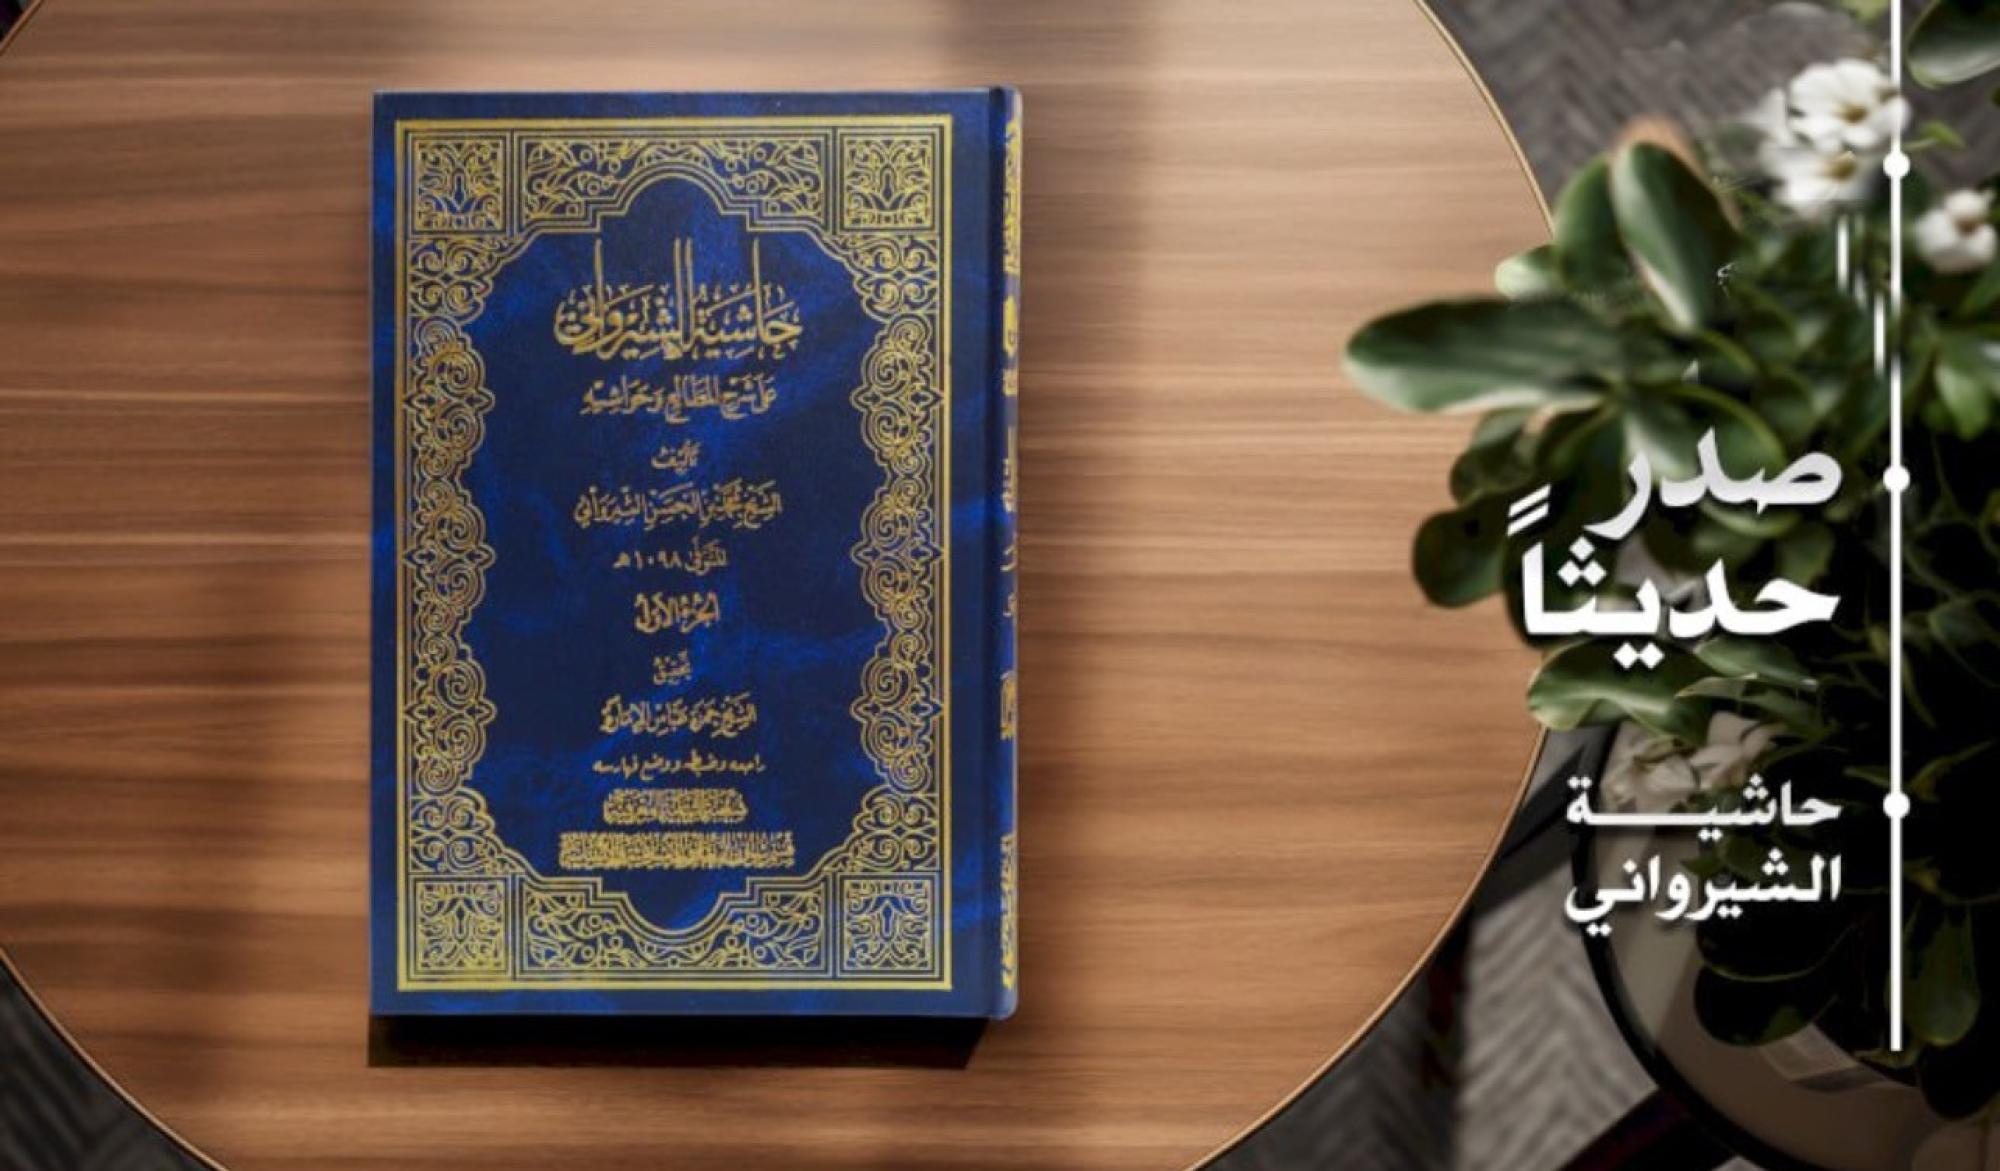 حاشية الشيرواني
على شرح المطالع وحواشيه
تأليف
الشيخ محمد بن الحسن الشيرواني
المتوفى ١٠٩٨هـ
الجزء الأول
تحقيق
الشيخ حمزة عباس الإمارة
راجعه وضبطه ووضع فهارسه
صدر
حديثاً
حاشيـــة
الشيرواني